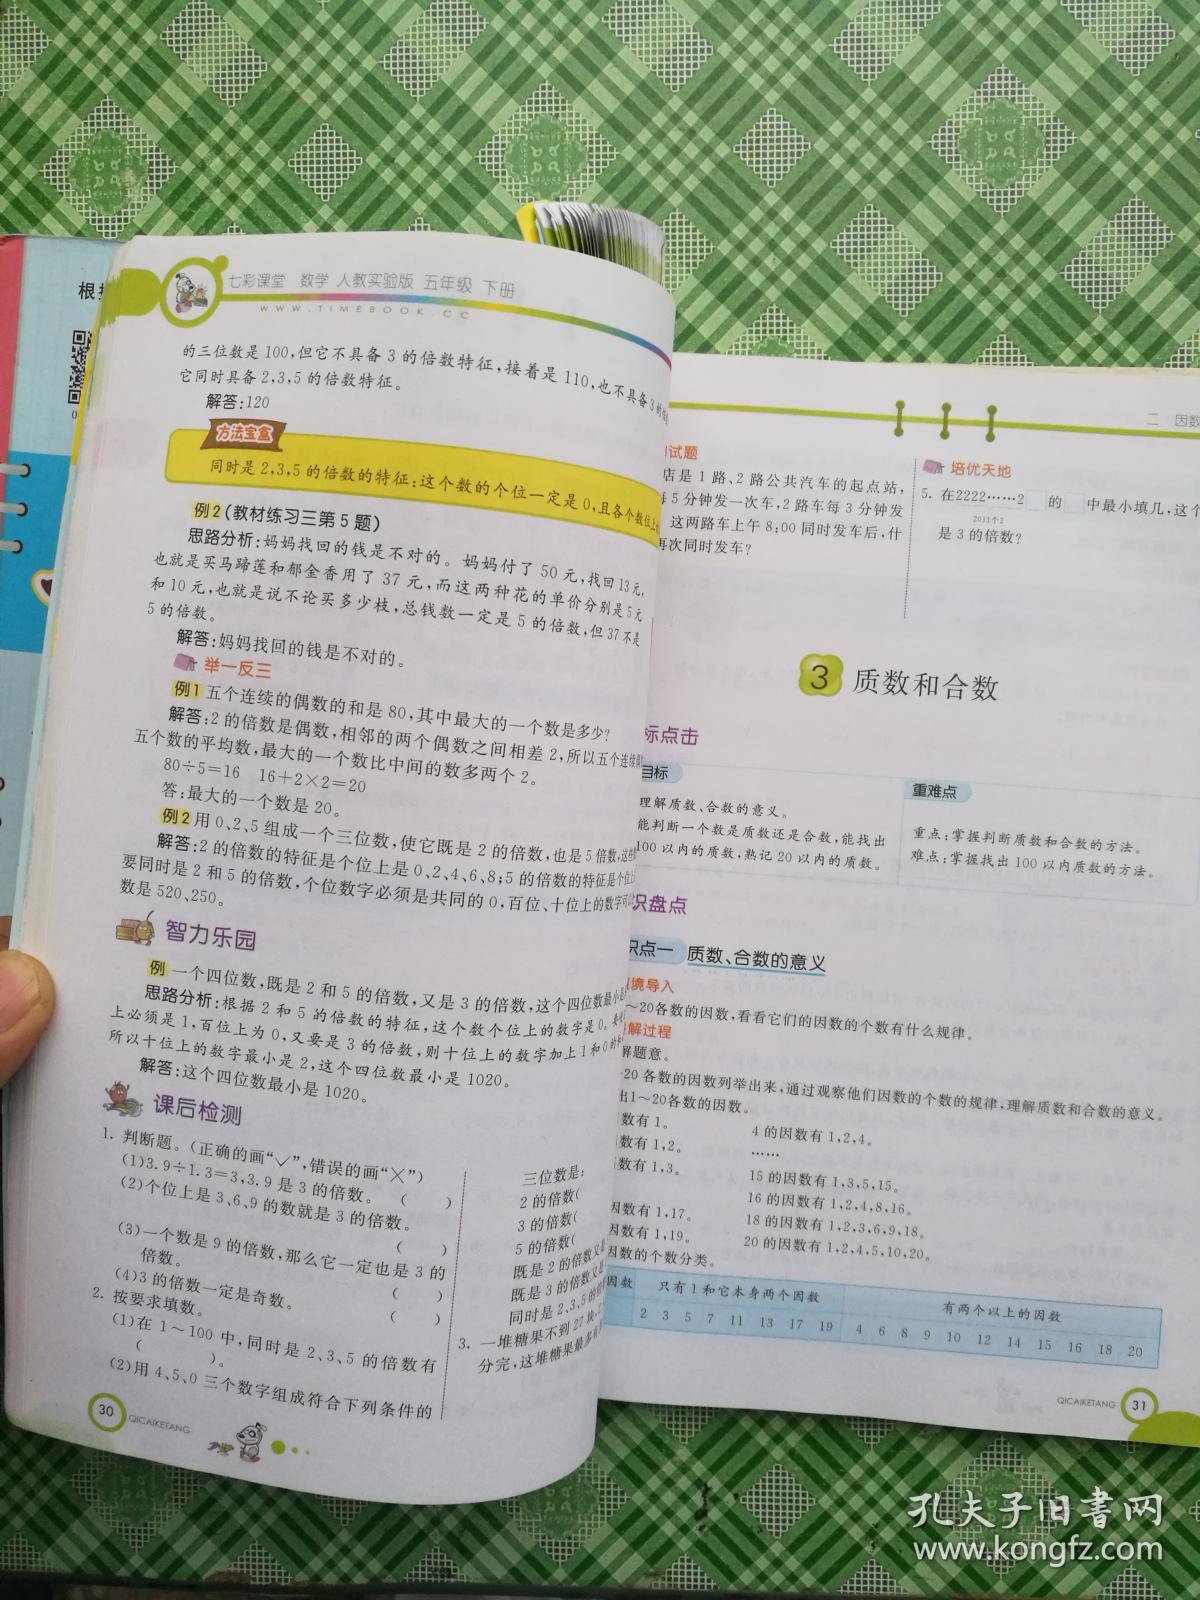 根据
七彩课堂 数学 人教实验版 五年级 下册
WWW.TIMEBOOK.CC
的三位数是100,但它不具备3的倍数特征,接着是110,也不具备3的
它同时具备2,3,5的倍数特征。
解答:120
方法宝盒
同时是2,3,5的倍数的特征:这个数的个位一定是0,且各个数位上
例2(教材练习三第5题)
思路分析:妈妈找回的钱是不对的。妈妈付了50元,找回13元,
也就是买马蹄莲和郁金香用了37元,而这两种花的单价分别是5元
和10元,也就是说不论买多少枝,总钱数一定是5的倍数,但37不是
5的倍数。
解答:妈妈找回的钱是不对的。
举一反三
例1 五个连续的偶数的和是80,其中最大的一个数是多少?
解答:2的倍数是偶数,相邻的两个偶数之间相差2,所以五个连续
五个数的平均数,最大的一个数比中间的数多两个2。
80÷5=16 16+2×2=20
答:最大的一个数是20。
例2 用0、2、5组成一个三位数,使它既是2的倍数,也是5倍数,这些
解答:2的倍数的特征是个位上是0、2、4、6、8;5的倍数的特征是个位
要同时是2和5的倍数,个位数字必须是共同的0,百位、十位上的数字可以
数是520、250。
智力乐园
例 一个四位数,既是2和5的倍数,又是3的倍数,这个四位数最小是
思路分析:根据2和5的倍数的特征,这个数个位上的数字是0。
上必须是1,百位上为0,又要是3的倍数,则十位上的数字加上1和0的和
所以十位上的数字最小是2,这个四位数最小是1020。
解答:这个四位数最小是1020。
课后检测
1. 判断题。(正确的画“√”,错误的画“×”)
(1)3.9÷1.3=3,3.9是3的倍数。 ( )
(2)个位上是3、6、9的数就是3的倍数。
( )
(3)一个数是9的倍数,那么它一定也是3的
倍数。 ( )
(4)3的倍数一定是奇数。 ( )
2. 按要求填数。
(1)在1～100中,同时是2、3、5的倍数有
( )。
(2)用4、5、0三个数字组成符合下列条件的
三位数是:
2的倍数(
3的倍数(
5的倍数(
既是2的倍数又是
既是3的倍数又是
同时是2、3、5的倍
3. 一堆糖果不到27块,
分完,这堆糖果最多有
30 QICAIKETANG
二 因数
试题
店是1路、2路公共汽车的起点站,
每5分钟发一次车,2路车每3分钟发
这两路车上午8:00同时发车后,什
再次同时发车?
培优天地
5. 在2222……2□的□中最小填几,这个
2011个2
是3的倍数?
3 质数和合数
标点击
目标
理解质数、合数的意义。
能判断一个数是质数还是合数,能找出
100以内的质数,熟记20以内的质数。
重难点
重点:掌握判断质数和合数的方法。
难点:掌握找出100以内质数的方法。
识盘点
识点一 质数、合数的意义
境导入
～20各数的因数,看看它们的因数的个数有什么规律。
解过程
解题意。
20各数的因数列举出来,通过观察他们因数的个数的规律,理解质数和合数的意义。
出1～20各数的因数。
数有1。 4的因数有1,2,4。
数有1,2。 ……
数有1,3。 15的因数有1,3,5,15。
16的因数有1,2,4,8,16。
因数有1,17。 18的因数有1,2,3,6,9,18。
因数有1,19。 20的因数有1,2,4,5,10,20。
因数的个数分类。
因数 只有1和它本身两个因数 有两个以上的因数
2 3 5 7 11 13 17 19 4 6 8 9 10 12 14 15 16 18 20
QICAIKETANG 31
孔夫子旧书网
www.kongfz.com